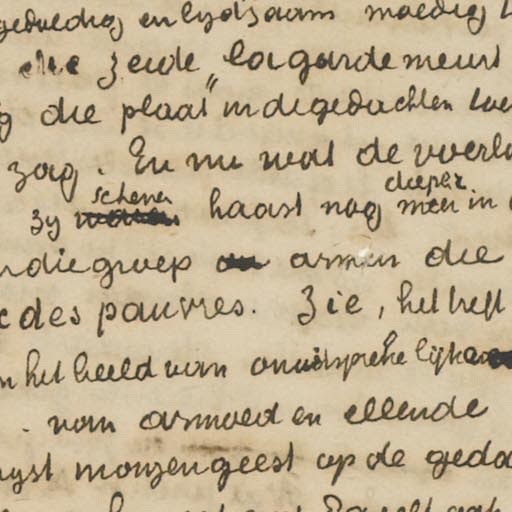 geduldig en lydzaam moedig
die zeide „la garde meurt
die plaat in de gedachten
zag. En nu wat de voorla
schenen dieper
zy haast nog meer in
die groep armen die
des pauvres. Zie, het treft
het beeld van onuitsprekelijke
. van armoed en ellende
myzen geest op de geda